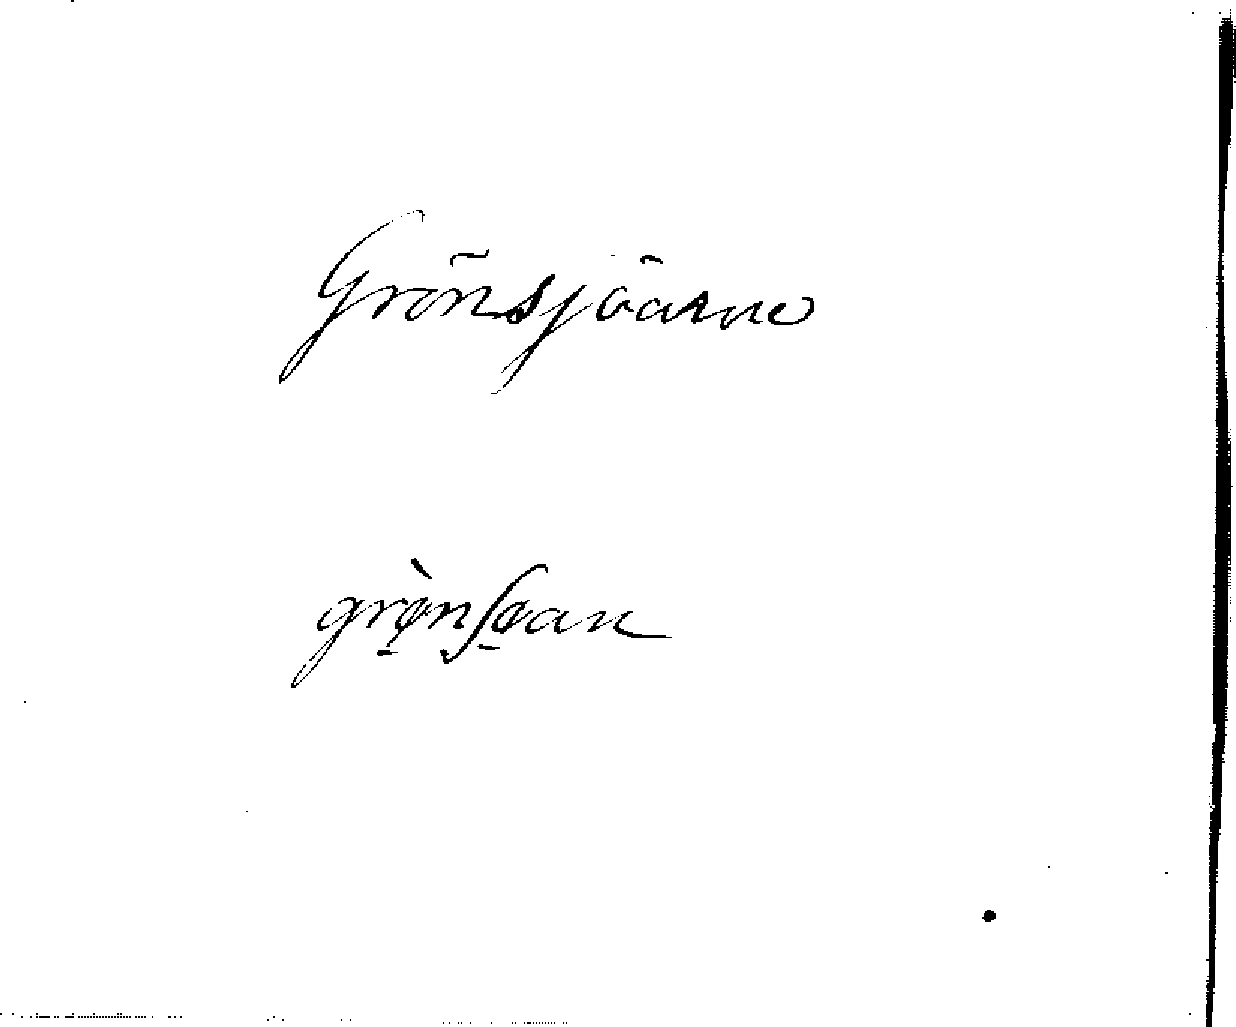 Grönsjöarne
grø̀nʃøan